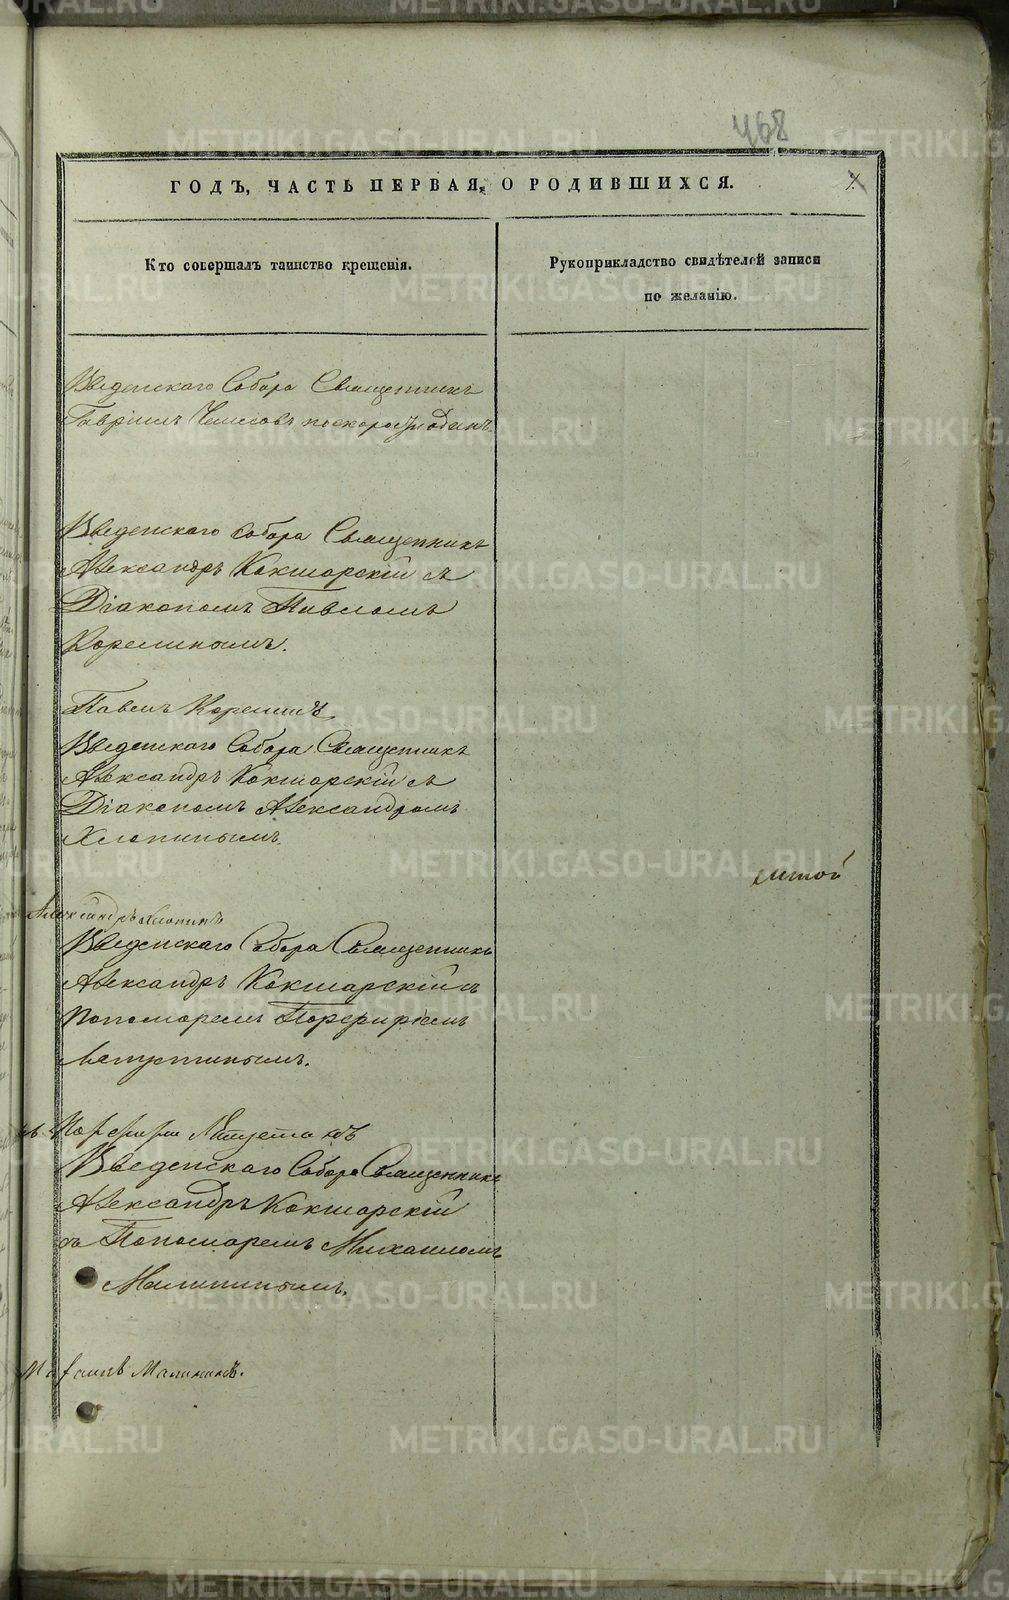 468
ГОДЪ, ЧАСТЬ ПЕРВАЯ, О РОДИВШИХСЯ.
Кто совершалъ таинство крещенія.
Рукоприкладство свидѣтелей записи
по желанію.
Введенскаго Собора Священникъ
Гавріилъ
Введенскаго Собора Священникъ
Александръ Кокшарскій съ
Діакономъ Павломъ
Корелинымъ.
Павелъ Корелинъ
Введенскаго Собора Священникъ
Александръ Кокшарскій съ
Діакономъ Александромъ
Хлопинымъ.
Александръ Хлопинъ
Введенскаго Собора Священникъ
Александръ Кокшарскій съ
Пономаремъ Порфиріемъ
Порфирій
Введенскаго Собора Священникъ
Александръ Кокшарскій
съ Пономаремъ Михаиломъ
Малининымъ.
Малининъ.
METRIKI.GASO-URAL.RU